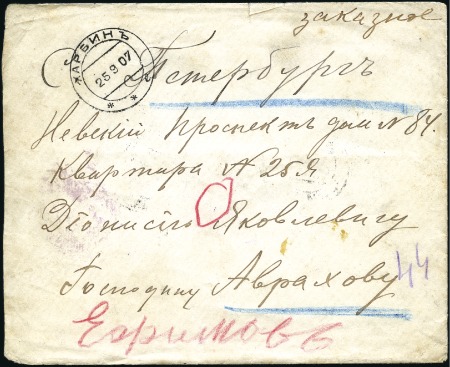 заказное
ХАРБИНЪ
25 9 07
С Петербургъ
Невскій Проспектъ домъ N 84.
Квартира N 25я
Діонисію Яковлевичу
Господину Аврахову
44
Ефимовъ